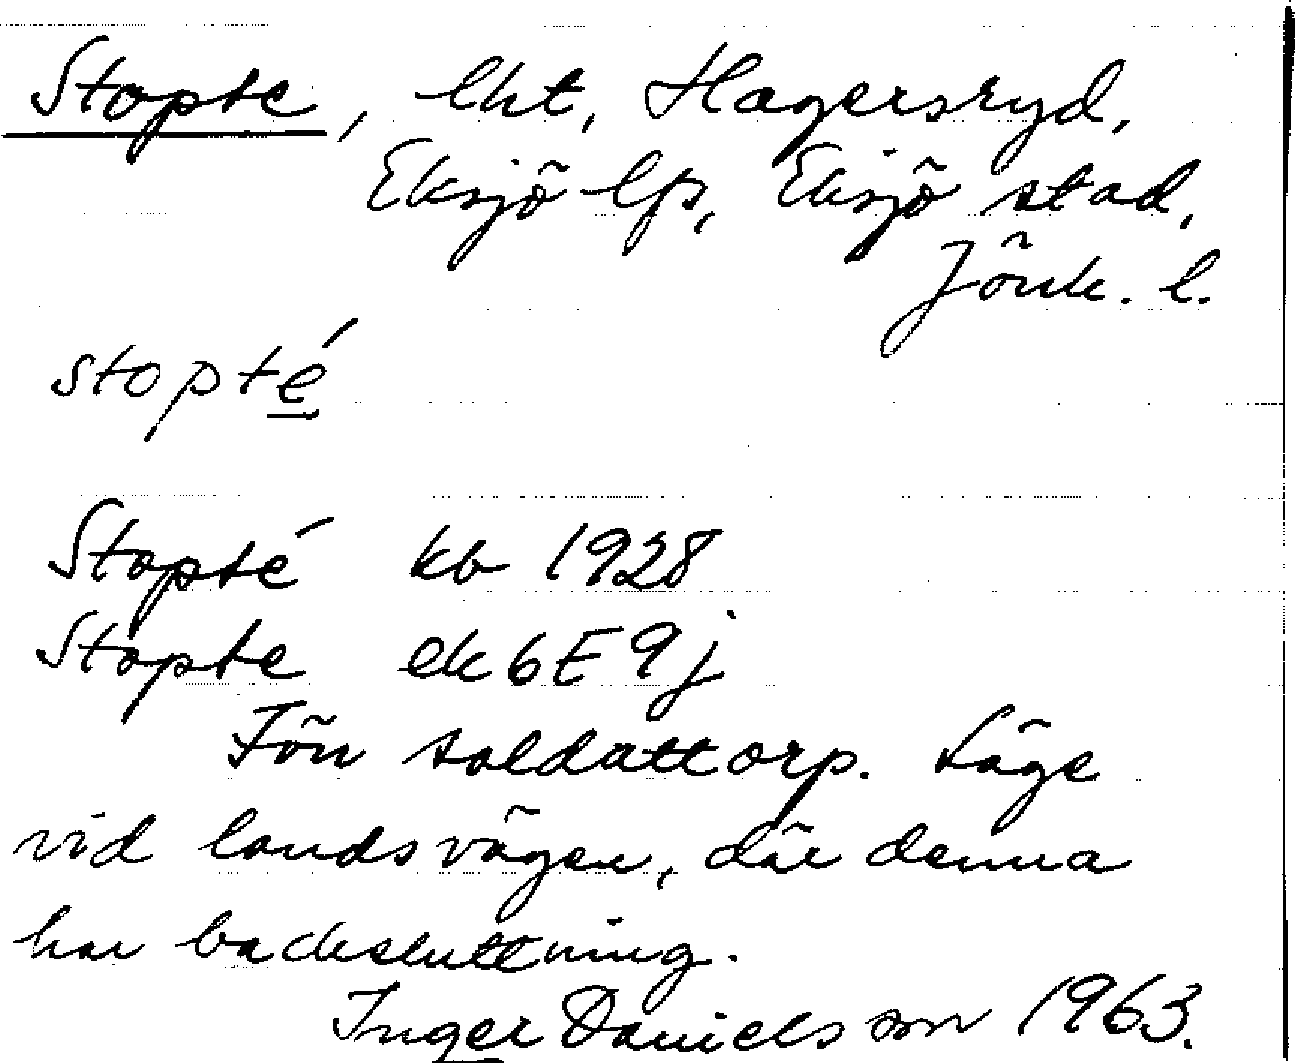 Stopte, lht, Hagersryd,
Eksjö lfs, Eksjö stad,
Jönk. l.
stopté
Stopté kb 1928
Stopte ek 6E9j
Förr soldattorp. Läge
vid landsvägen, där denna
har backsluttning.
Inger Danielsson 1963.